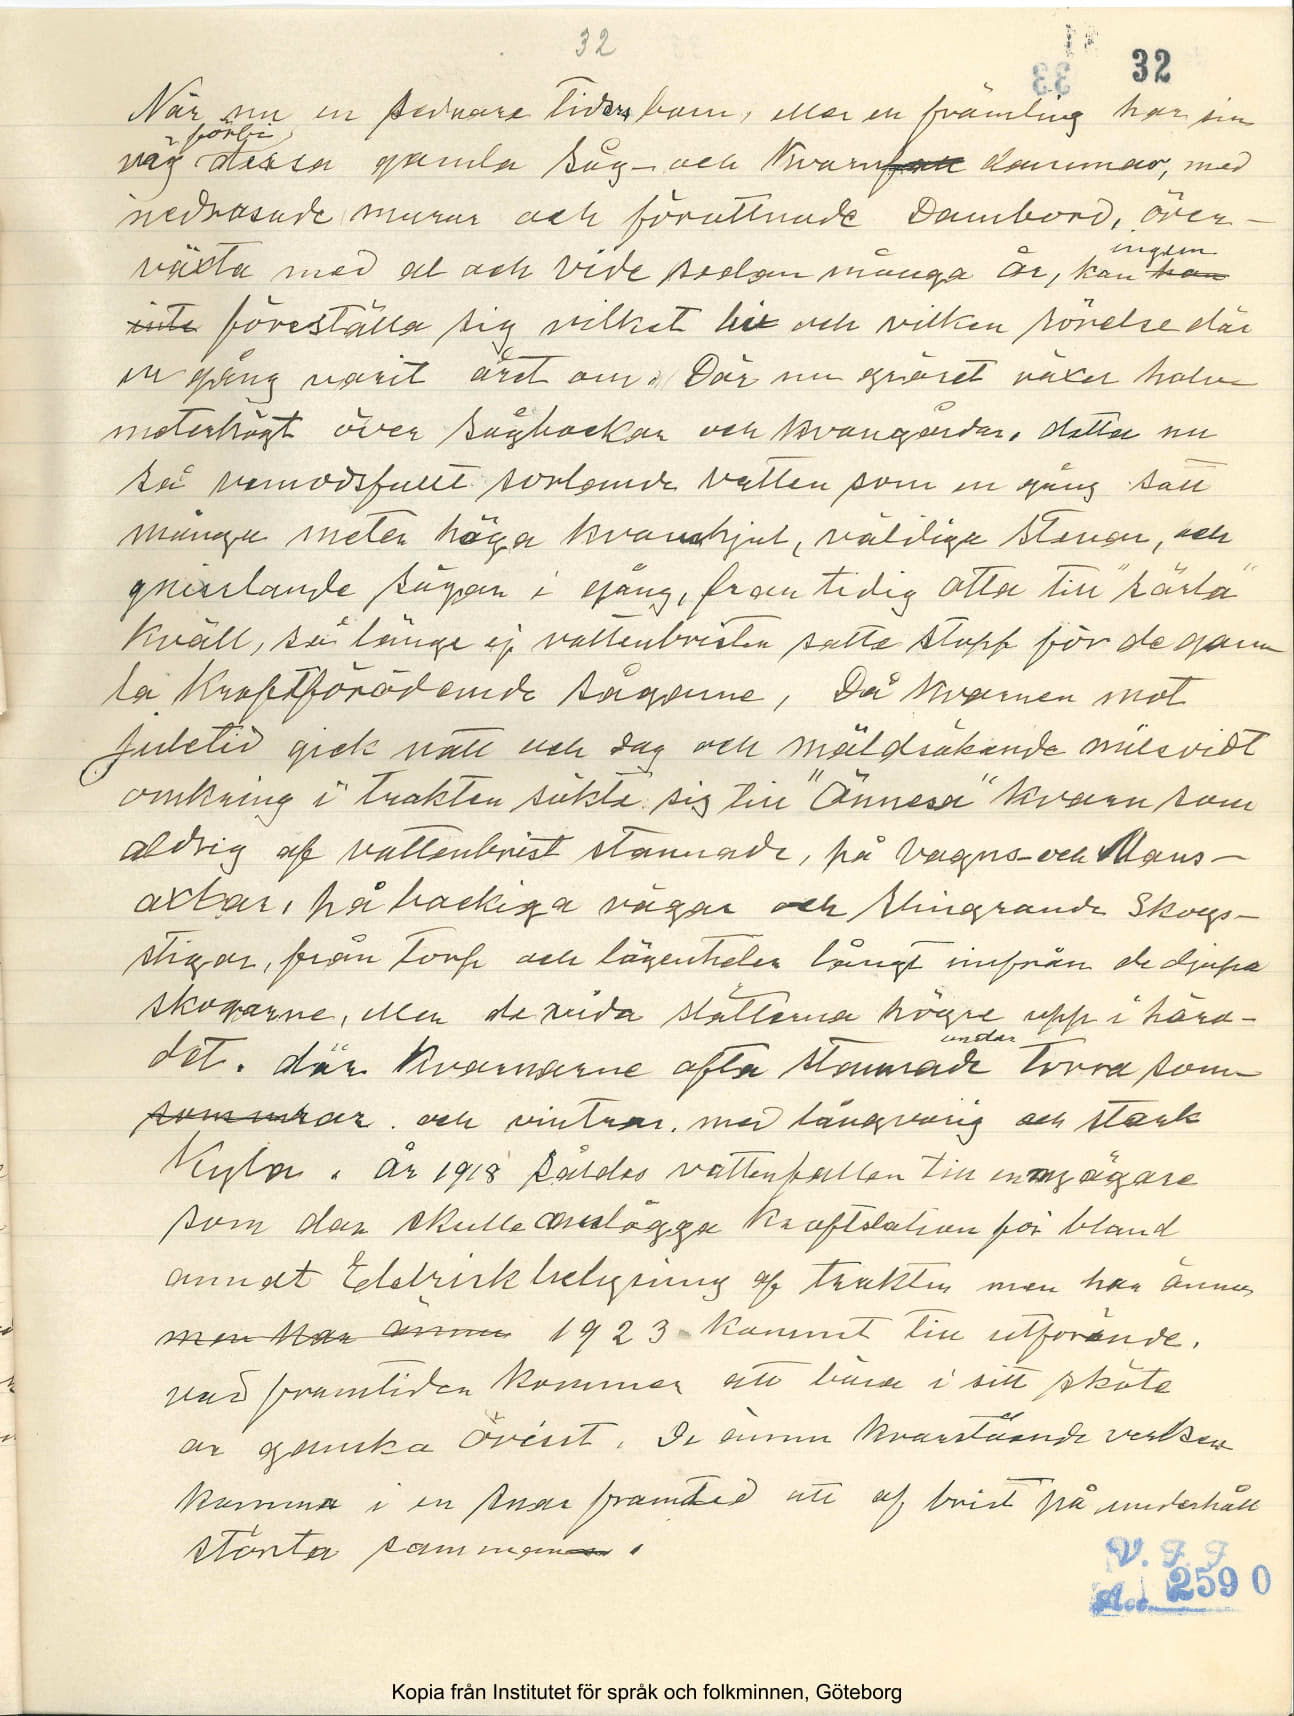 32
32
När nu en senare tiders barn, eller en främling har sin
förbi
väg dessa gamla Såg- och Kvarn dammar, med
nedrasade murar och förruttnade Dambord, över-
ingen
växta med al och vide sedan många År, kan han
inte föreställa sig vilket liv och vilken rörelse där
en gång varit året om. Där nu gräset växer halv
meterhögt över Sågbackar och kvangårdar, detta nu
så vemodsfullt sorlande vatten som en gång satt
många meter höga kvarnhjul, väldiga Stenar, och
gnisslande Sågar i gång, från tidig otta till "särla"
Kväll, så länge ej vattenbristen satte stopp för de gam
la Kraftförödande sågarne, Då Kvarnen mot
juletid gick natt och dag och mäldsökande milsvidt
omkring i trakten sökte sig till "Ånnesa" kvarn som
aldrig af vattenbrist stannade, på Vagns- och
axlar, på backiga vägar och slingrande Skogs-
stigar, från Torp och lägenheter långt inifrån de djupa
skogarne, eller de vida slätterna högre upp i hära-
under
det. där Kvarnarne ofta stannade torra som-
sommrar. och vintrar. med långvarig och stark
Kyla. År 1918 såldes vattenfallen till en ny ägare
som där skulle anlägga Kraftstation för bland
annat Elektrisk belysning af trakten men har ännu
men har ännu 1923 kommit till utförande.
vad framtiden kommer att bära i sitt sköte
är ganska Ovisst. De ännu kvarstående verken
komma i en snar framtid att af brist på underhåll
störta samman.
V. F. F
Acc. 2590
Kopia från Institutet för språk och folkminnen, Göteborg